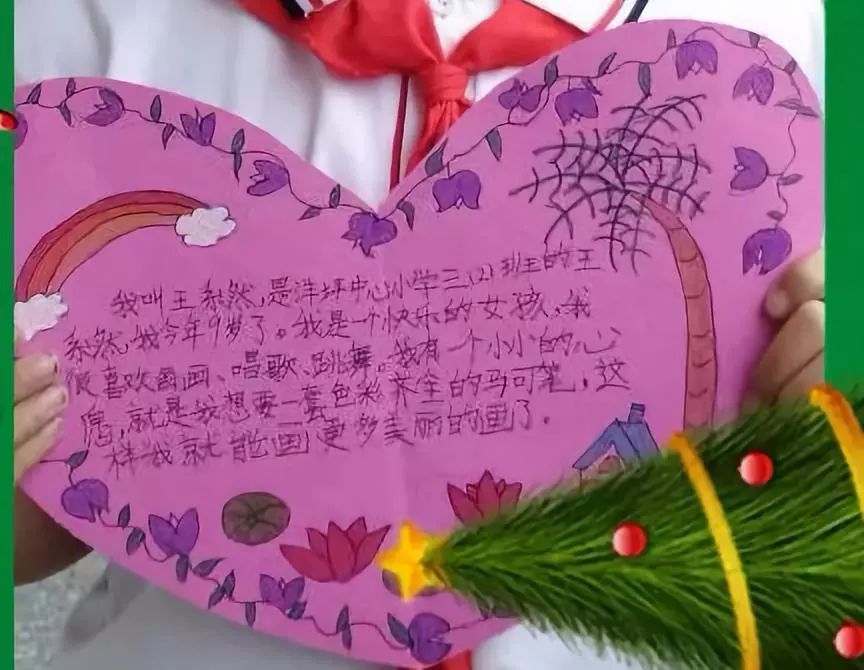 我叫王紫然,是洋坪中心小学三(2)班的王
紫然,我今年9岁了。我是一个快乐的女孩,我
很喜欢画画、唱歌、跳舞。我有一个小小的心
愿,就是我想要一套色彩齐全的马可笔,这
样我就能画更多美丽的画了.